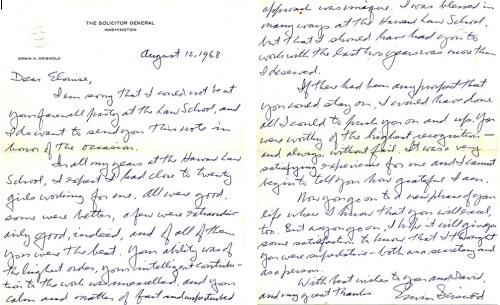 THE SOLICITOR GENERAL
WASHINGTON
ERWIN N. GRISWOLD
August 12, 1968
Dear Eloise,
I am sorry that I could not be at
your farewell party at the Law School, and
I do want to send you this note in
honor of the occasion.
In all my years at the Harvard Law
School, I expect I had close to twenty
girls working for me. All were good,
some were better, a few were extraordin-
arily good, indeed, and of all of them
you were the best. Your ability was of
the highest order, your intelligent contribu-
tion to the work was unexcelled, and your
calm and matter of fact and unperturbed
approach was unique. I was blessed in
many ways at the Harvard Law School,
but that I should have had you to
work with the last two years was more than
I deserved.
If there had been any prospect that
you could stay on, I would have done
all I could to push you on and up. You
were worthy of the highest recognition -
and always, without fail. It was a very
satisfying experience for me and I cannot
begin to tell you how grateful I am.
Now you go on to a new phase of your
life where I know that you will excel,
too. But as you go on, I hope it will give you
some satisfaction to know that I thought
you were superlative - both as a secretary and
as a person.
With best wishes to you and David,
and my great thanks. Erwin Griswold